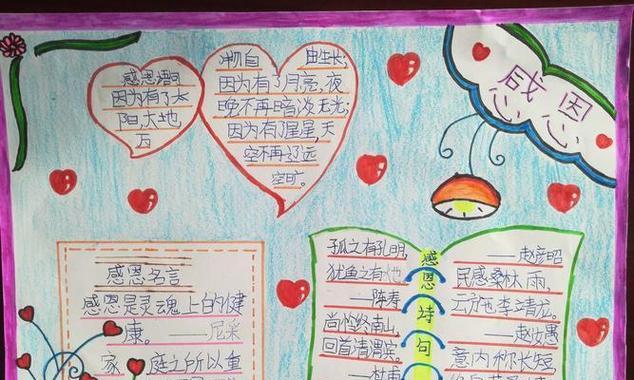 感恩
感恩词
因为有了太
阳,大地
万
物自 由生长;
因为有了月亮,夜
晚不再暗淡无光;
因为有了星星,天
空不再辽远
空旷。
感恩名言
感恩是灵魂上的健
康。——尼采
家庭之所以重
感恩诗句
孤之有孔明,
犹鱼之有
——陈寿
尚怜终南山,
回首清渭滨。
——杜甫
——赵彦昭
民感桑林雨,
云施李靖龙。
——赵汝愚
意内称长短